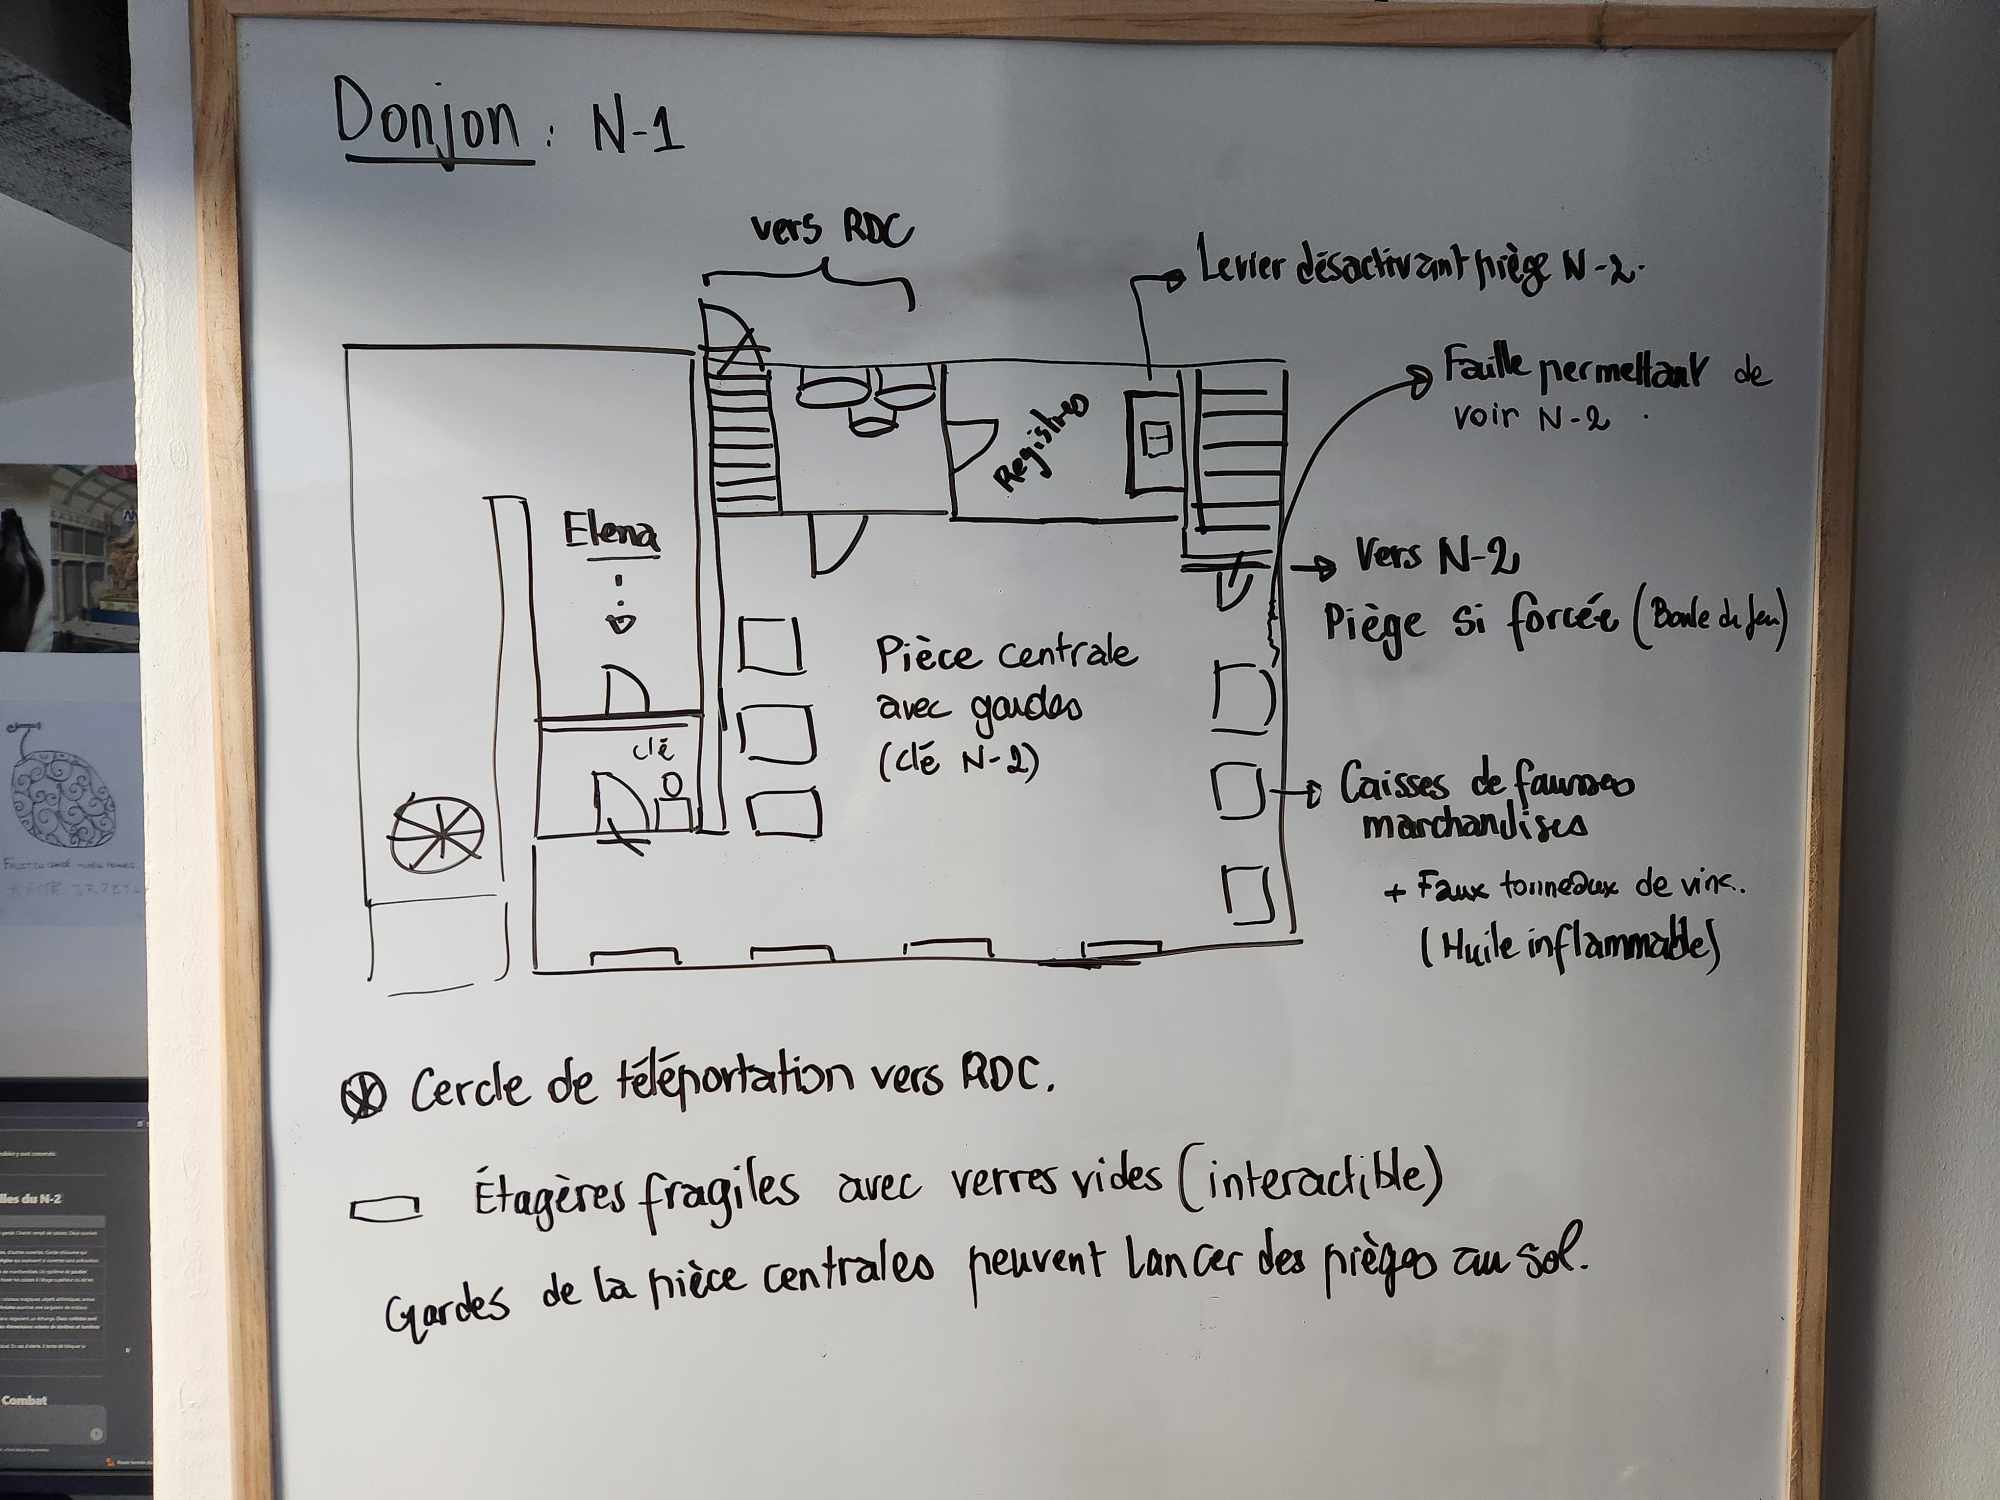 Donjon : N-1
vers RDC
Levier désactivant piège N-2.
Faille permettant de
voir N-2.
Registres
Elena
Vers N-2
Piège si forcée (Boule de feu)
Pièce centrale
avec gardes
(clé N-2)
clé
Caisses de fausses
marchandises
+ Faux tonneaux de vins.
(Huile inflammable)
Cercle de téléportation vers RDC.
Étagères fragiles avec verres vides (interactible)
Gardes de la pièce centrales peuvent lancer des pièges au sol.
lles du N-2
Combat